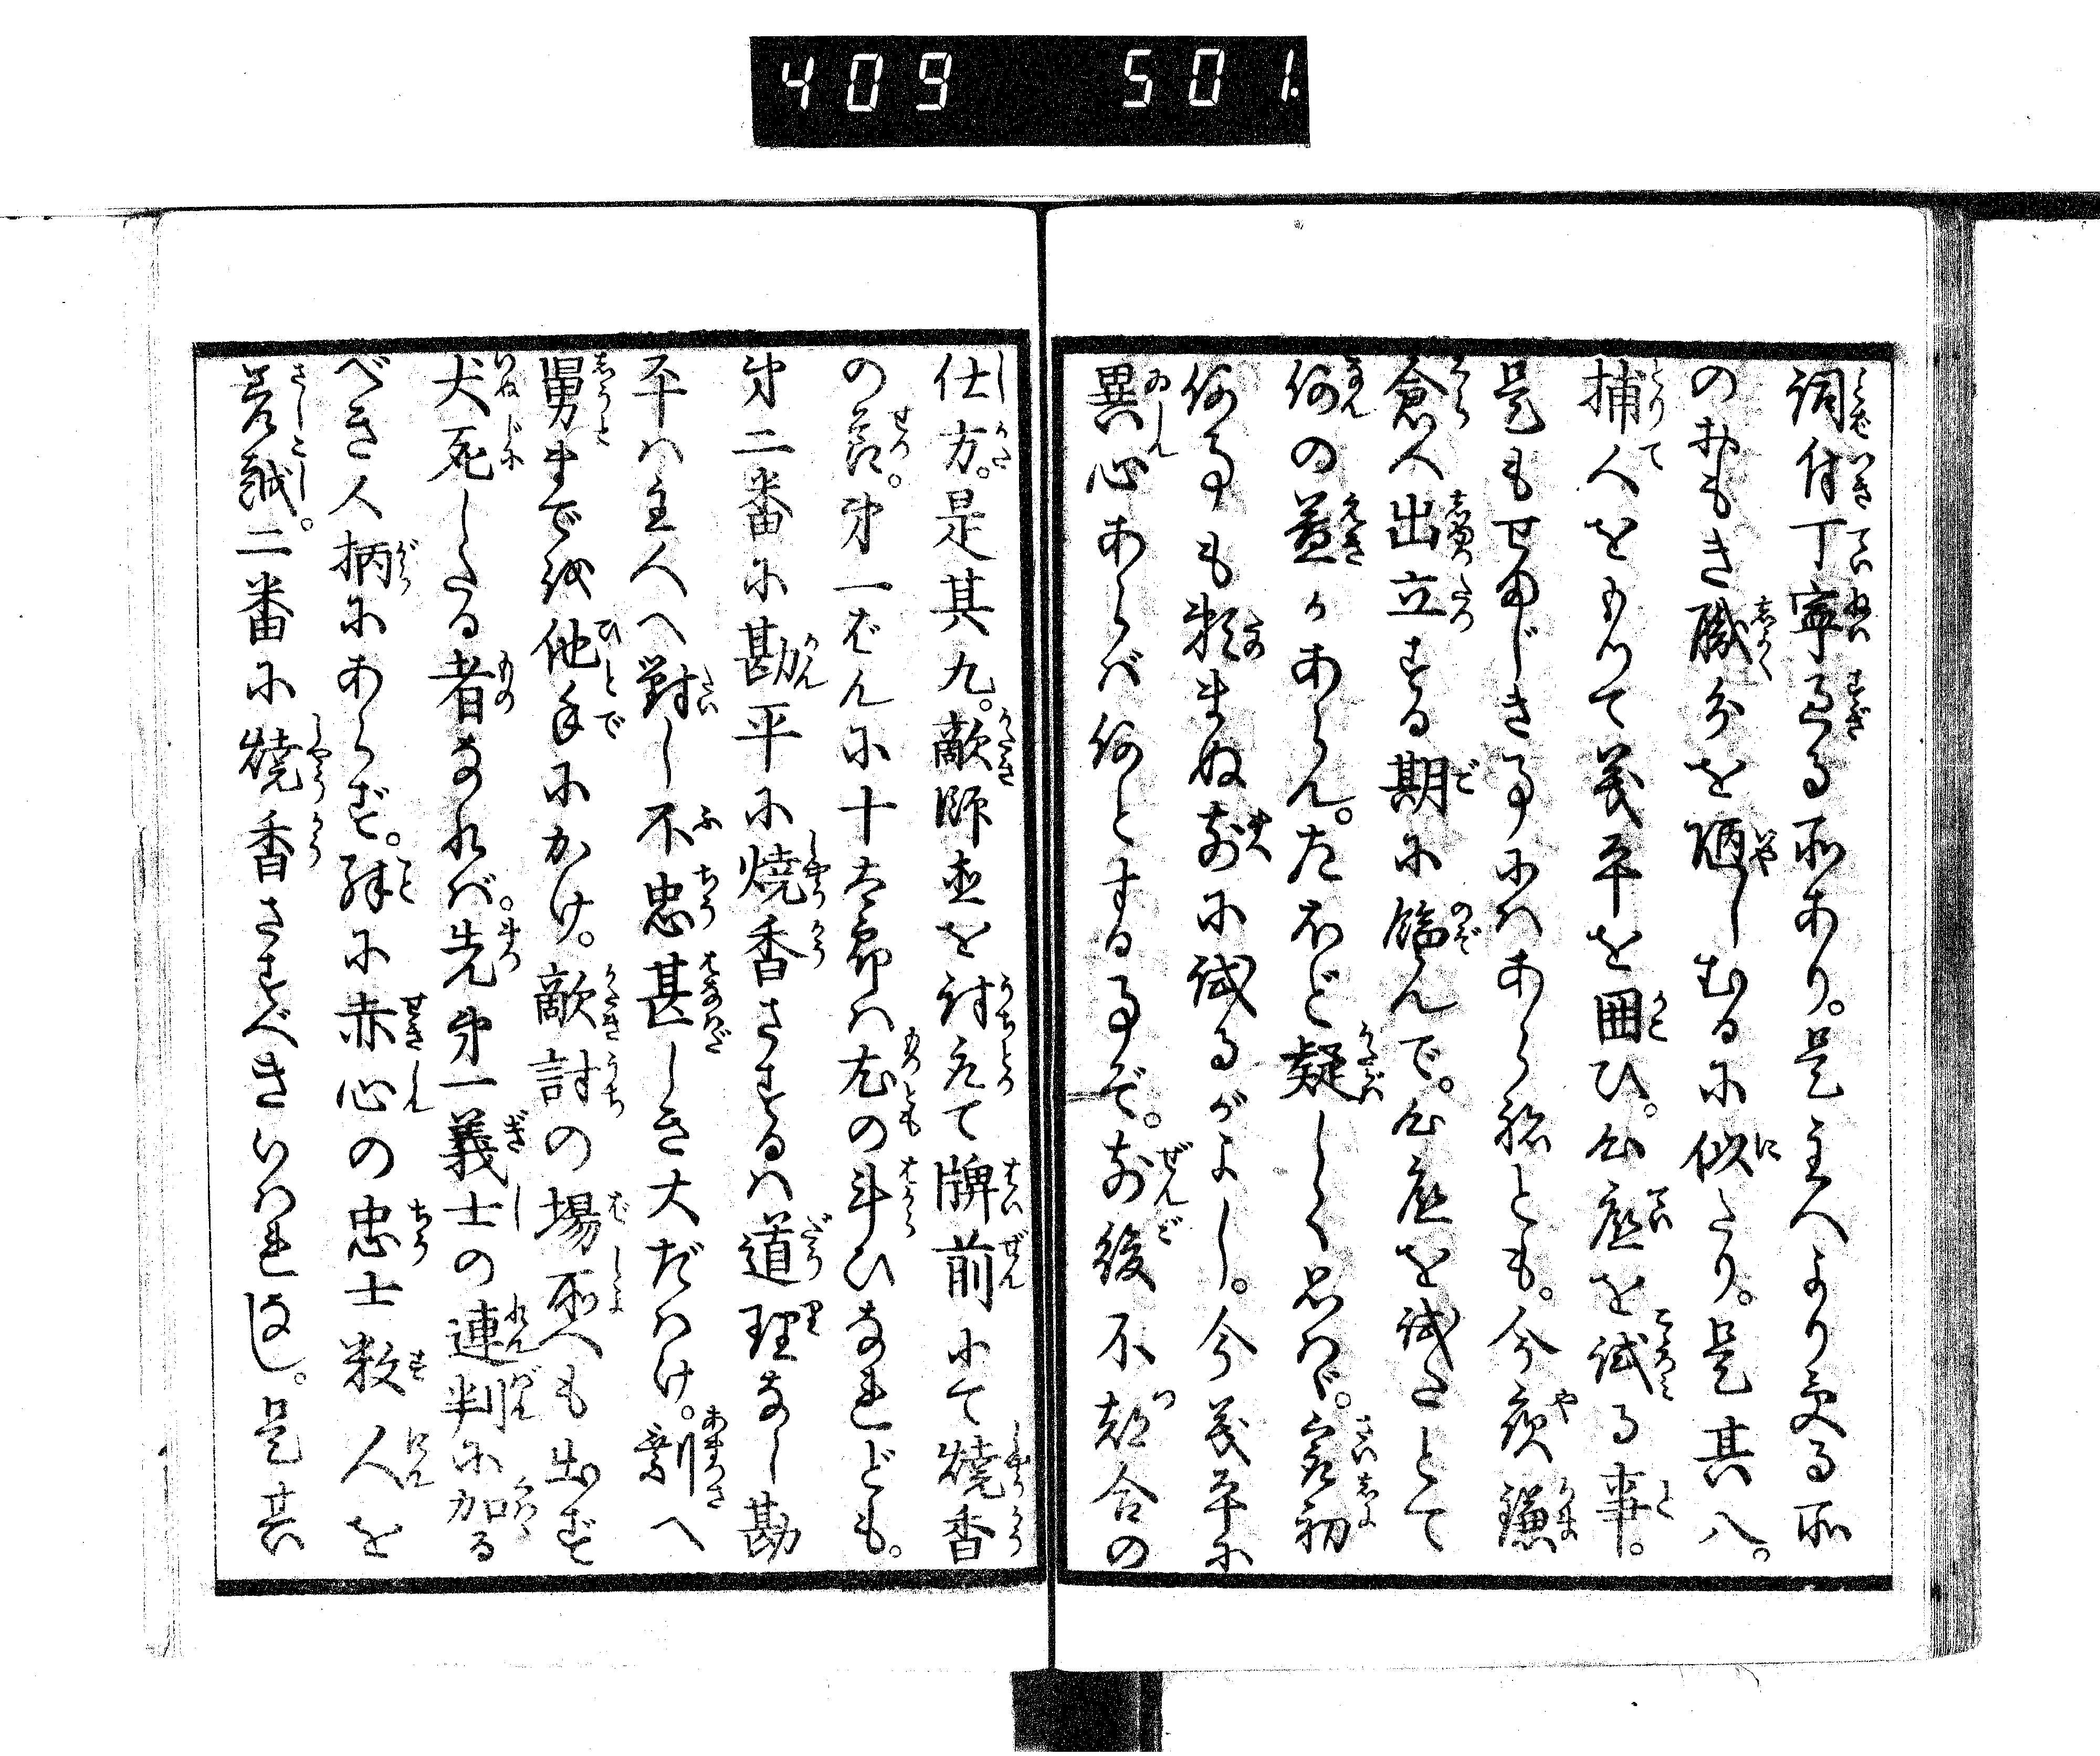 409 501.
詞付丁寧過る所あり。是主人より受る所
のおもき職分を陋しむるに似たり。是其八。
捕人をもつて義平を囲ひ。心底を試る事。
是もせまじき事にはあらねども。今夜鎌
倉人出立する期に臨んで。心底を試たとて
何の益かあらん。たほど疑しく思はゞ。最初
何事も頼まぬ前に試るがよし。今義平に
異心あらば何とする事ぞ。前後不都合の
仕方。是其九。敵師直を討取て牌前にて焼香
の節。第一ばんに十太郎は尤の斗ひなれども。
第二番に勘平に焼香さするは道理なし勘
平は主人へ対し不忠甚しき大だはけ。剰へ
舅まで級他手にかけ。敵討の場所へも出ず
犬死したる者なれば。先第一義士の連判に加る
べき人柄にあらず。殊に赤心の忠士数人を
差越。二番に焼香さすべきいはれなし。是其